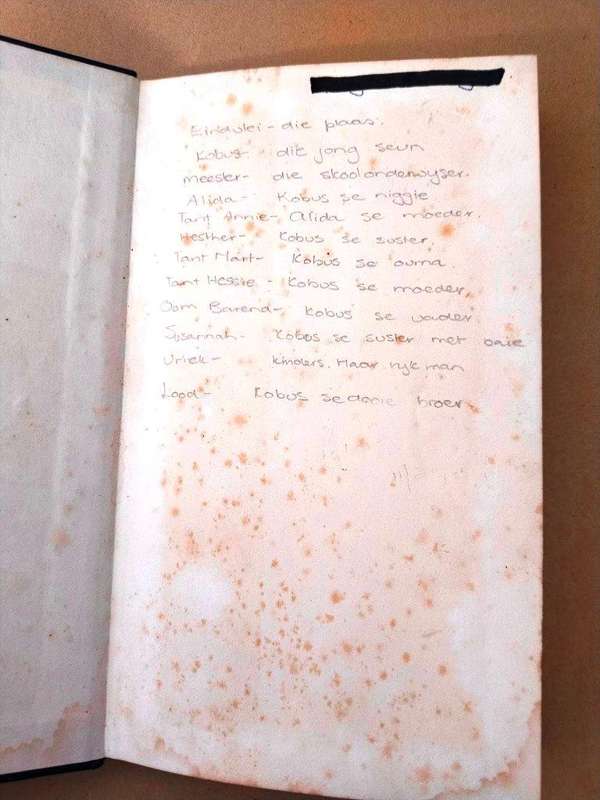 Eindvlei - die plaas.
Kobus - die jong seun
Meester - die skoolonderwyser.
Alida - Kobus se niggie
Tant Annie - Alida se moeder.
Hesther - Kobus se suster.
Tant Mart - Kobus se ouma.
Tant Hessie - Kobus se moeder
Oom Barend - Kobus se vader
Susannah - Kobus se suster met baie
Uriek - kinders. Haar ryk man
Lood - Kobus se broer